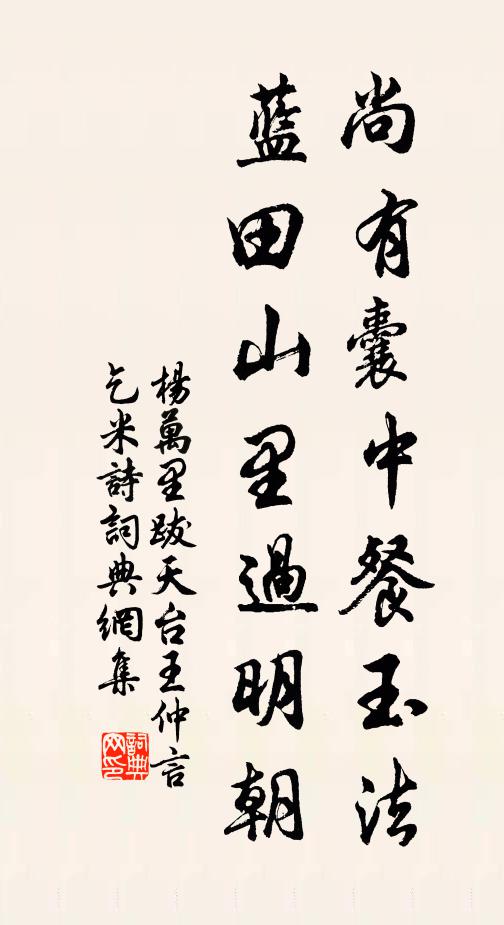 尚有囊中餐玉法
藍田山里過明朝
楊萬里跋天台王仲言
乞米詩詞典網集
詞典
网印